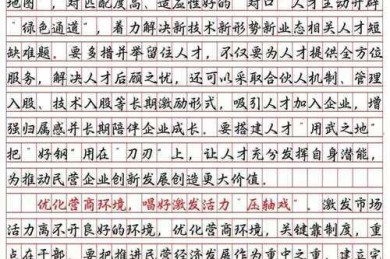 地图"，对匹配度高、适宜性好的"对口"人才主动开辟
"绿色通道"，着力解决新技术新形势新业态相关人才短
缺难题。要多措并举留住人才，不仅要为人才提供全方位
服务，解决人才后顾之忧，还可以采取合伙人机制、管理
入股、技术入股等长期激励形式，吸引人才加入企业，增
强归属感并长期陪伴企业成长。要搭建人才"用武之地"
把"好钢"用在"刀刃"上，让人才充分发挥自身潜能，
为推动民营企业创新发展创造更大价值。
优化营商环境，唱好激发活力"压轴戏"。激发市场
活力离不开良好的环境，优化营商环境，关键靠制度，重
点在干部。要把推进民营经济发展作为重中之重，建立完